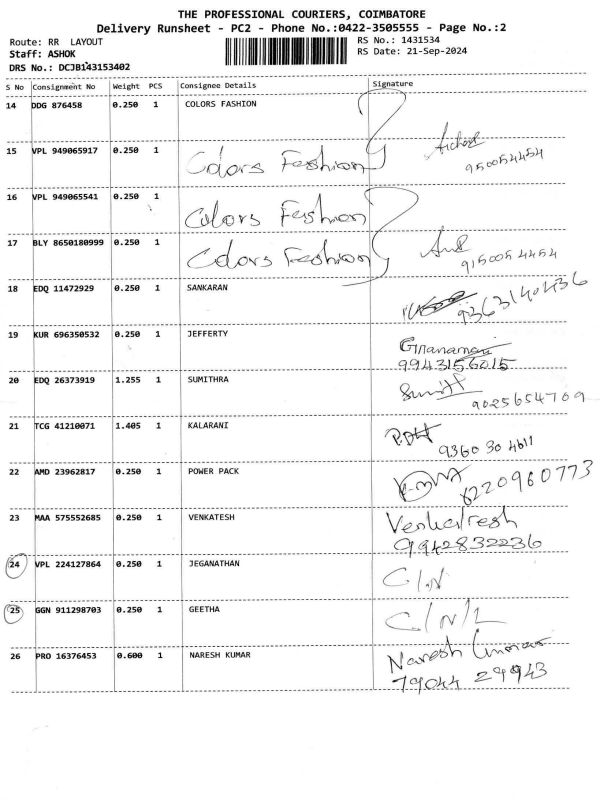 THE PROFESSIONAL COURIERS, COIMBATORE
Delivery Runsheet - PC2 - Phone No.:0422-3505555 - Page No.:2
Route: RR LAYOUT
RS No.: 1431534
Staff: ASHOK
RS Date: 21-Sep-2024
DRS No.: DCJB143153402
S No Consignment No Weight PCS Consignee Details Signature
14 DDG 876458 0.250 1 COLORS FASHION
15 VPL 949065917 0.250 1 Colors Fashion
9150054454
16 VPL 949065541 0.250 1 Colors Fashion
17 BLY 8650180999 0.250 1 Colors Fashion
9150054454
18 EDQ 11472929 0.250 1 SANKARAN
9363140436
19 KUR 696350532 0.250 1 JEFFERTY
9943156015
20 EDQ 26373919 1.255 1 SUMITHRA
9025654709
21 TCG 41210071 1.405 1 KALARANI
9360 30 4611
22 AMD 23962817 0.250 1 POWER PACK
6220960773
23 MAA 575552685 0.250 1 VENKATESH Venkatesh
9942832236
24 VPL 224127864 0.250 1 JEGANATHAN C/N
25 GGN 911298703 0.250 1 GEETHA C/N/L
26 PRO 16376453 0.600 1 NARESH KUMAR Naresh Kumar
79044 29943